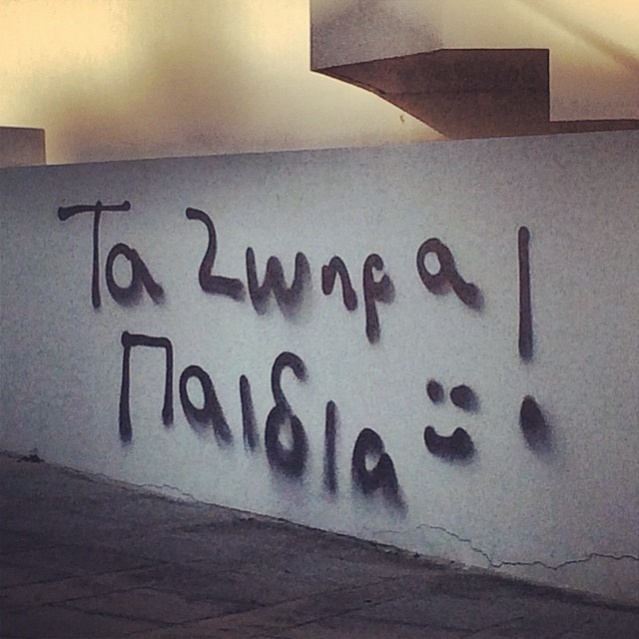 Τα Ζωηρα !
Παιδια :)